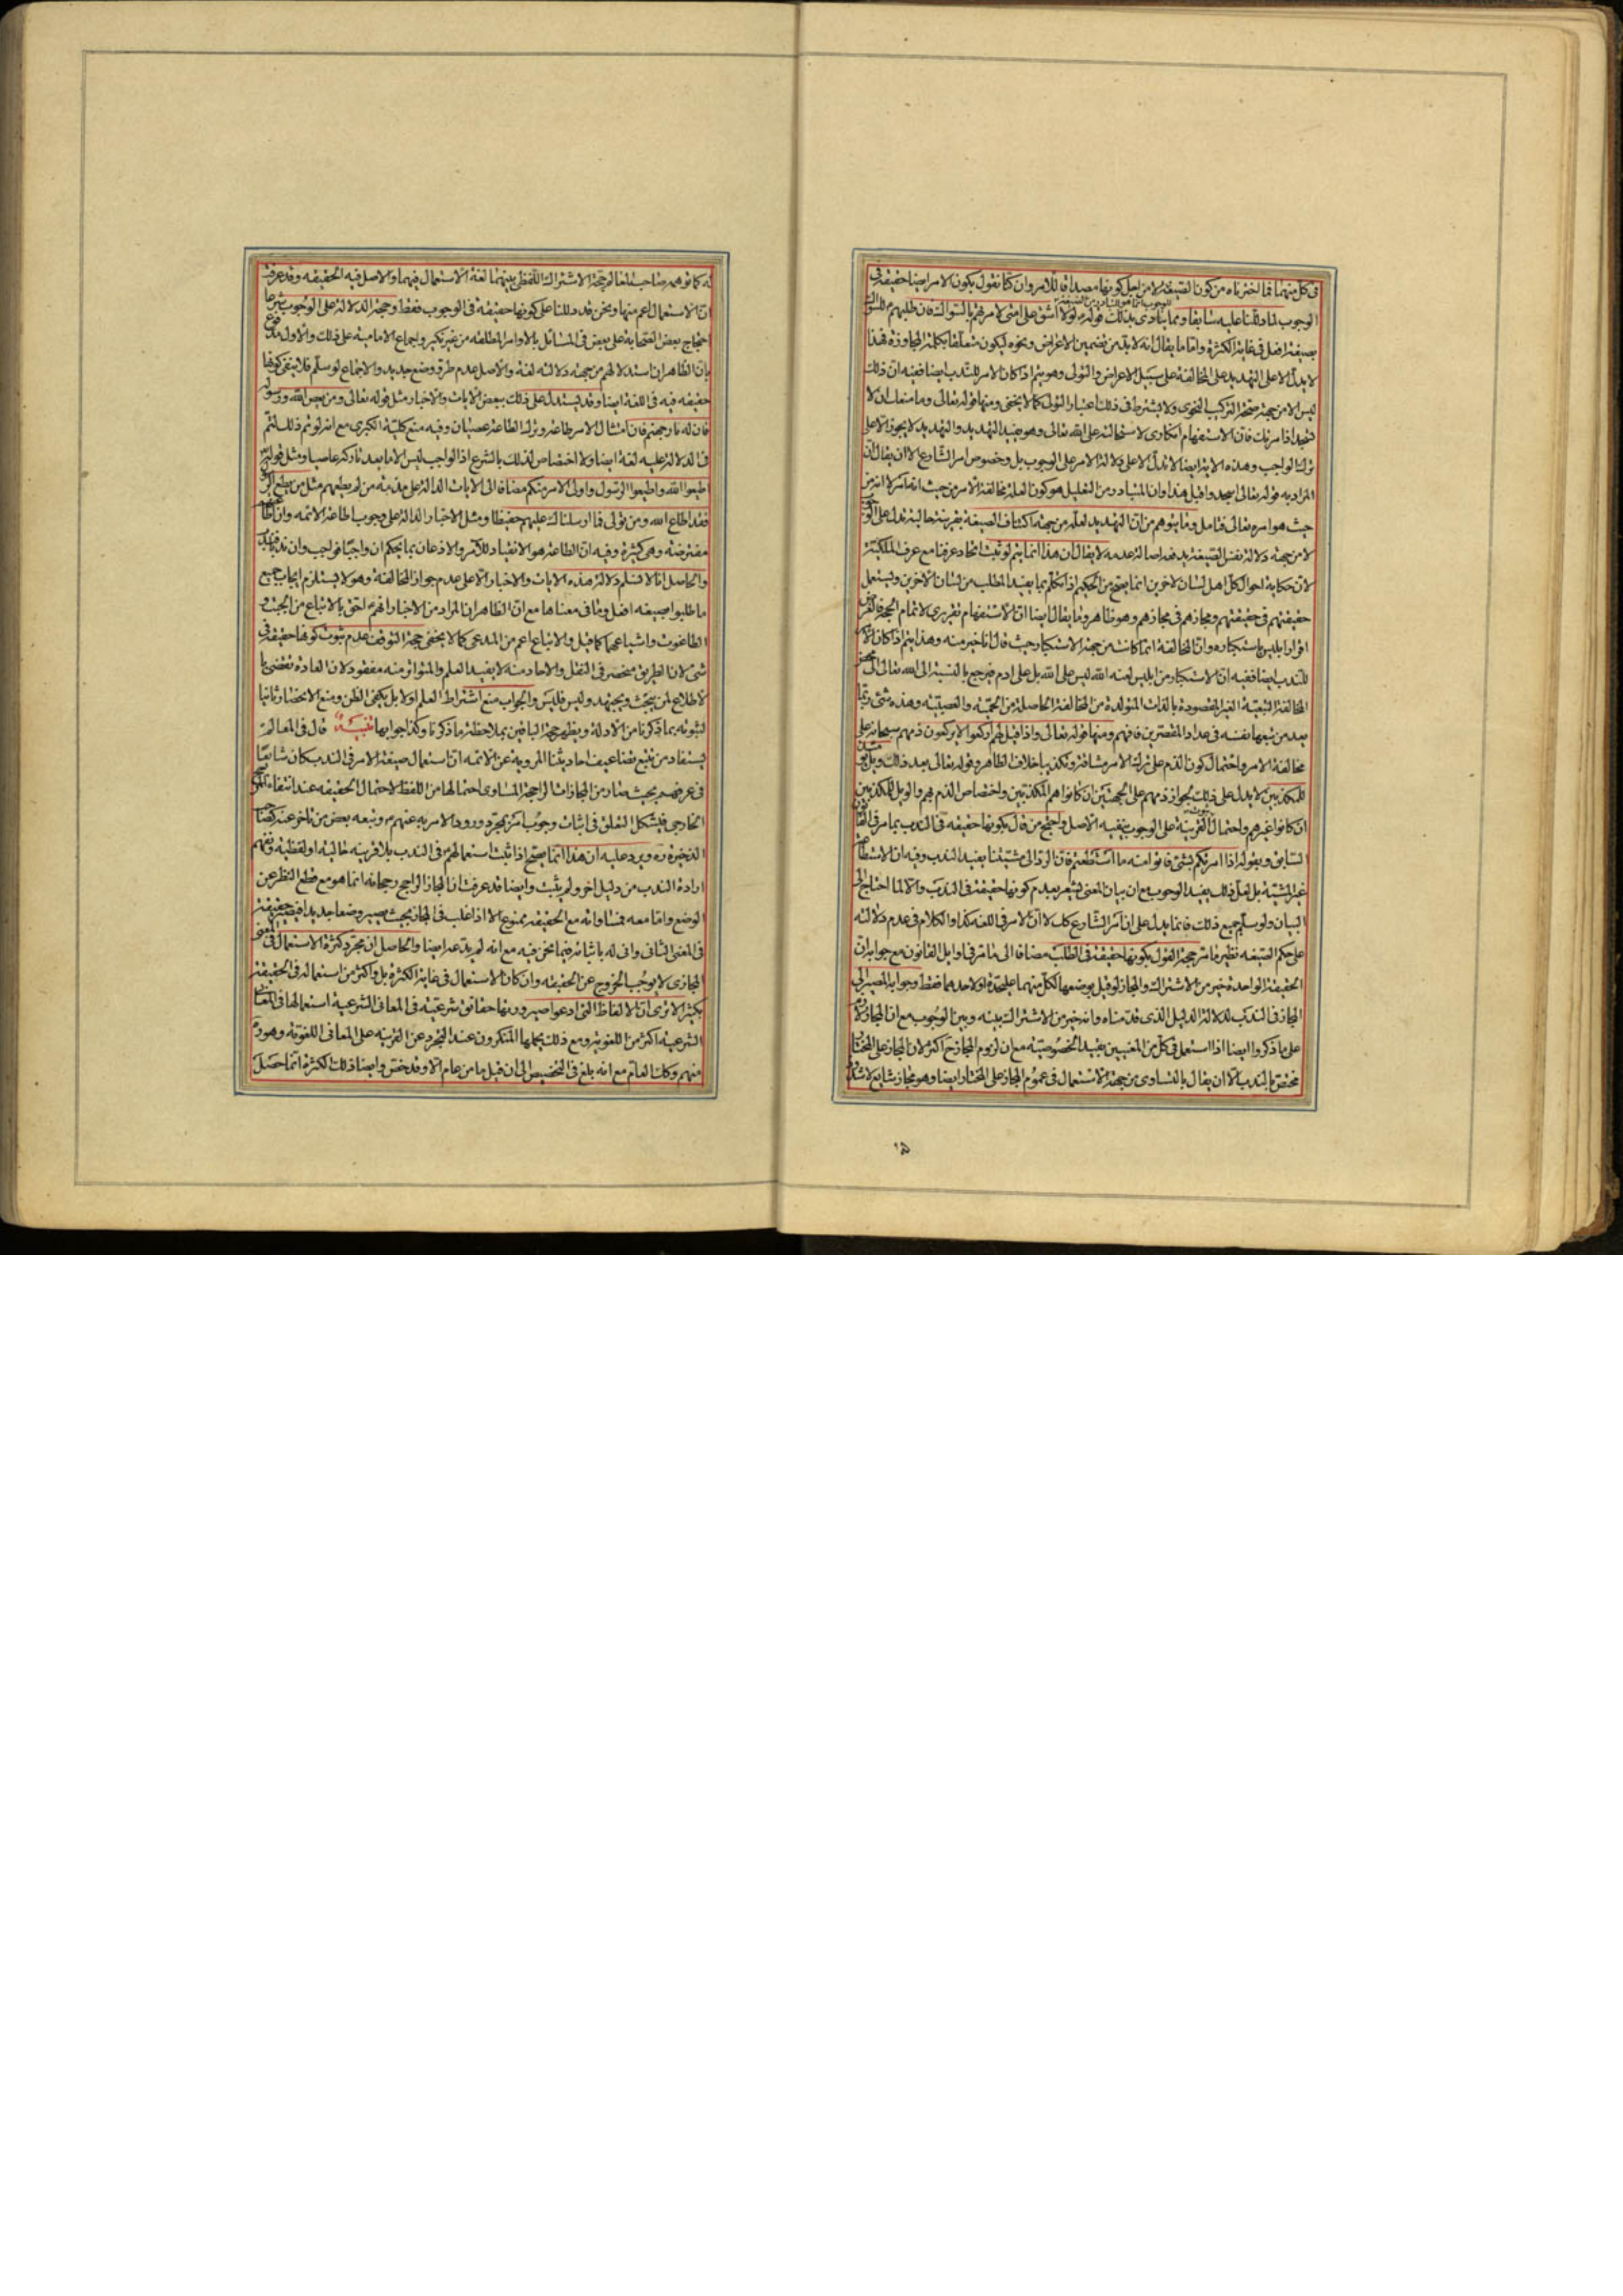 فی كل منهما فما اخترناه من كون الصیغة لا من اجل كونها مصداقا للامر وان كنا نقول بكون الامر ایضا حقیقة فی
الوجوب لما دللنا علیه سابقا ومما ینادی بذلك قوله لولا ان اشق علی امتی لامرتهم بالسواك فان طلبهم للسواك
بصیغة افعل فی غایة الكثرة واما ما یقال انه لا بد من تضمین الاعراض ونحوه لیكون متعلقا بكلمة المجاوزة فهذا
لا یدل الا علی التهدید علی المخالفة علی سبیل الاعراض والتولی وهو یتم اذا كان الامر للندب ایضا ففیه ان ذلك
لیس الا من جهة صحة التركیب النحوی ولا یشترط فی ذلك اعتبار التولی كما لا یخفی ومنها قوله تعالی وما منعك ان لا
تسجد اذ امرتك فان الاستفهام انكاری لاستحالته علی الله تعالی وهو یفید التهدید والتهدید لا یجوز الا علی
ترك الواجب وهذه الایة ایضا لا تدل الا علی دلالة الامر علی الوجوب بل وخصوص امر الشارع الا ان یقال ان
المراد به قوله تعالی اسجدوا قبل هذا وان المتبادر من التعلیل هو كون العلة مخالفة الامر من حیث انه امر لا انه من
حیث هو امره تعالی فتامل وما یتوهم من ان التهدید لعله من جهة اكتناف الصیغة بقرینة حالیة تدل علی الوجوب
لا من جهة دلالة نفس الصیغة یدفعه اصالة عدمه لا یقال ان هذا انما یتم لو ثبت اتحاد عرفنا مع عرف الملائكة
لان حكایة احوال كل اهل لسان لاخرین انما یصح من الحكیم اذا تكلم بما یفید المطلب من لسان الاخرین ویستعمل
حقیقتهم فی حقیقتهم ومجازهم فی مجازهم وهو ظاهر وما یقال ایضا ان الاستفهام تقریری لاتمام الحجة فالغرض
اقرار ابلیس باستكباره وان المخالفة انما كانت من جهة الاستكبار حیث قال انا خیر منه وهذا یتم اذا كان الامر
للندب ایضا ففیه ان الاستكبار من ابلیس لعنه الله لیس علی الله بل علی ادم فیرجع بالنسبة الی الله تعالی الی محض
المخالفة التبعیة الغیر المقصودة بالذات المتولدة من المخالفة الحاصلة من الحمیة والعصبیة وهذه شیء ربما
یعد من تبعها نفسه فی عداد المقصرین فافهم ومنها قوله تعالی واذا قیل لهم اركعوا لا یركعون ذمهم سبحانه علی
مخالفة الامر واحتمال كون الذم علی ترك الامر مشاقة وتكذیبا خلاف الظاهر وقوله تعالی بعد ذلك ویل یومئذ
للمكذبین لا یدل علی ذلك لجواز ذمهم علی الجهتین ان كانوا هم المكذبین واختصاص الذم بهم والویل للمكذبین
ان كانوا غیرهم واحتمال ثبوت القرینة علی الوجوب ینفیه الاصل واحتج من قال بكونها حقیقة فی الندب بما مر فی القانون
السابق وبقوله اذا امرتكم بشیء فاتوا منه ما استطعتم فان الرد الی مشیتنا یفید الندب وفیه ان الاستطاعة
غیر المشیة بل لعل ذلك یفید الوجوب مع ان بیان المعنی یشعر بعدم كونها حقیقة فی الندب والا لما احتاج الی
البیان ولو سلم جمیع ذلك فانما یدل علی ان امر الشارع كك لا ان الامر فی اللغة كذا والكلام فی عدم دلالته
علی حكم الصیغة نظیر ما مر حجة القول بكونها حقیقة فی الطلب مضافا الی ما مر فی اوایل القانون مع جوابه ان
الحقیقة الواحدة خیر من الاشتراك والمجاز لو قیل بوضعها لكل منهما علیحدة او لاحدهما فقط وجوابه المصیر الی
المجاز فی الندب لدلالة الدلیل الذی قدمناه وانه خیر من الاشتراك بینه وبین الوجوب مع ان المجاز لازم
علی ما ذكروا ایضا اذا استعمل فی كل من المعنیین بقید الخصوصیة مع ان لزوم المجاز ح اكثر لان المجاز علی المختار
مختص بالندب الا ان یقال بالتساوی من جهة الاستعمال فی عموم المجاز علی المختار ایضا وهو مجاز شایع لا اشتراك
١٥
له كما توهمه صاحب المعالم حجة الاشتراك اللفظی بینهما لغة الاستعمال فیهما والاصل فیه الحقیقة وقد عرفت
ان الاستعمال اعم منها ونحن قد دللنا علی كونها حقیقة فی الوجوب فقط وحجة الدلالة علی الوجوب شرعا
احتجاج بعض الصحابة علی بعض فی المسائل بالاوامر المطلقة من غیر نكیر واجماع الامامیة علی ذلك والاول مدفوع
بان الظاهر ان استدلالهم من جهة دلالته لغة والاصل عدم طرو وضع جدید والاجماع لو سلم فلا ینفی كونها
حقیقة فیه فی اللغة ایضا وقد یستدل علی ذلك ببعض الایات والاخبار مثل قوله تعالی ومن یعص الله ورسوله
فان له نار جهنم فان امتثال الامر طاعة وترك الطاعة عصیان وفیه منع كلیة الكبری مع انه لو تم ذلك لتم
فی الدلالة علیه لغة ایضا ولا اختصاص لذلك بالشرع اذ الواجب لیس الا ما یعد تاركه عاصیا ومثل قوله
اطیعوا الله واطیعوا الرسول واولی الامر منكم مضافا الی الایات الدالة علی مذمة من لم یطعهم مثل من یطع الرسول
فقد اطاع الله ومن تولی فما ارسلناك علیهم حفیظا ومثل الاخبار الدالة علی وجوب اطاعة الائمة وان طاعتهم
مفترضة وهی كثیرة وفیه ان الطاعة هو الانقیاد للامر والاذعان بما یحكم ان واجبا فواجب وان ندبا فندب
والحاصل انا لا نسلم دلالة هذه الایات والاخبار الا علی عدم جواز المخالفة وهو لا یستلزم ایجاب جمیع
ما طلبوا بصیغة افعل وما فی معناها مع ان الظاهر ان المراد من الاخبار انهم احق بالاتباع من الجبت و
الطاغوت واشباههما كما قیل والاتباع اعم من المدعی كما لا یخفی حجة التوقف عدم ثبوت كونها حقیقة فی
شیء لان الطریق منحصر فی النقل والاحاد منه لا یفید العلم والمتواتر منه مفقود لان العادة تقتضی با
لاطلاع لمن یبحث ویجتهد ولیس فلیس والجواب منع اشتراط العلم اولا بل یكفی الظن ومنع الانحصار ثانیا
لثبوته بما ذكرنا من الادلة ویظهر حجة الباقین بملاحظة ما ذكرنا وكذا جوابها تنبیه قال فی المعالم
یستفاد من تتبع تضاعیف احادیثنا المرویة عن الائمة ان استعمال صیغة الامر فی الندب كان شایعا
فی عرفهم بحیث صار من المجازات الراجحة المساوی احتمالها من اللفظ لاحتمال الحقیقة عند انتفاء المرجح
الخارجی فیشكل التعلق فی اثبات وجوب امر بمجرد ورود الامر به عنهم وتبعه بعض من تاخر عنه كصاحب
الذخیرة ره ویرد علیه ان هذا انما یصح اذا ثبت استعمالهم فی الندب بلا قرینة حالیة او لفظیة وفهم
ارادة الندب من دلیل اخر ولم یثبت وایضا قد عرفت ان المجاز الراجح رجحانه انما هو مع قطع النظر عن
الوضع واما معه فمساواته مع الحقیقة ممنوع الا اذا غلب فی المجاز بحیث یصیر وضعا جدیدا فیصیر حقیقة
فی المعنی الثانی وانی له باثباته فیما نحن فیه مع انه لم یدعه ایضا والحاصل ان مجرد كثرة الاستعمال فی المعنی
المجازی لا یوجب الخروج عن الحقیقة وان كان الاستعمال فی غایة الكثرة بل واكثر من استعماله فی الحقیقة
بكثیر الا تری ان الالفاظ التی ادعوا صیرورتها حقائق شرعیة فی المعانی الشرعیة استعمالها فی المعانی
الشرعیة اكثر من اللغویة ومع ذلك یحملها المنكرون عند التجرد عن القرینة علی المعانی اللغویة وهو ره
منهم وكك العام مع انه بلغ فی التخصیص الی ان قیل ما من عام الا وقد خص وایضا ذلك الكثرة انما حصل